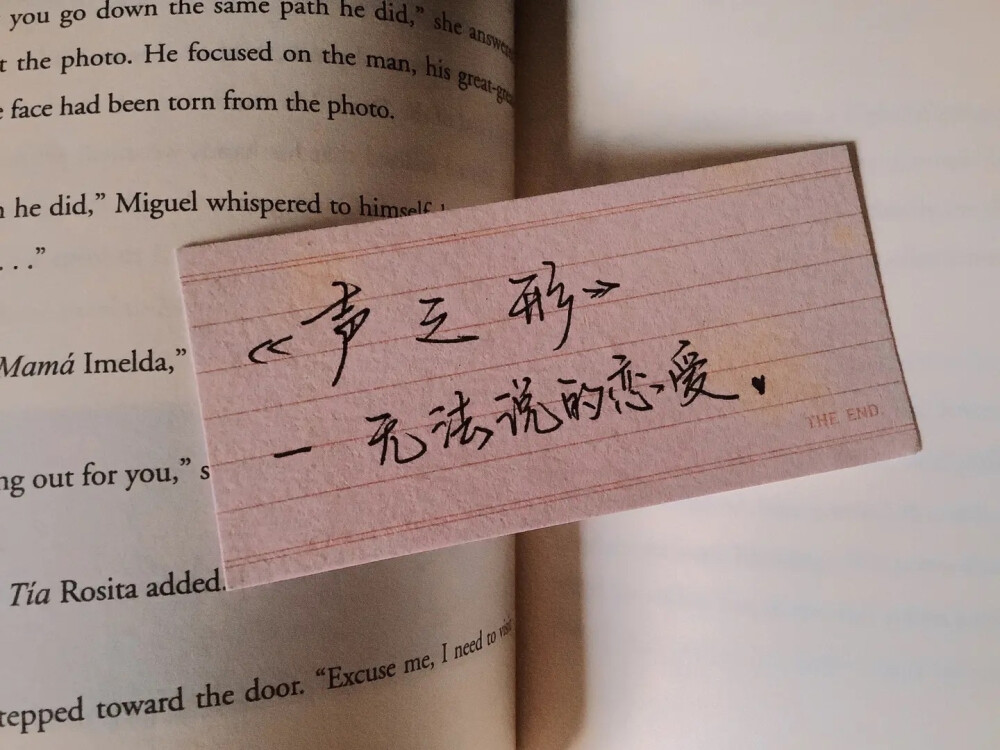 you go down the same path he did,” she answe
t the photo. He focused on the man, his great-gre
e face had been torn from the photo.
n he did,” Miguel whispered to himself
. . .”
Mamá Imelda,”
ng out for you,” s
Tía Rosita added.
tepped toward the door. “Excuse me, I need to visit
《声之形》
一 无法说的恋爱.
THE END.